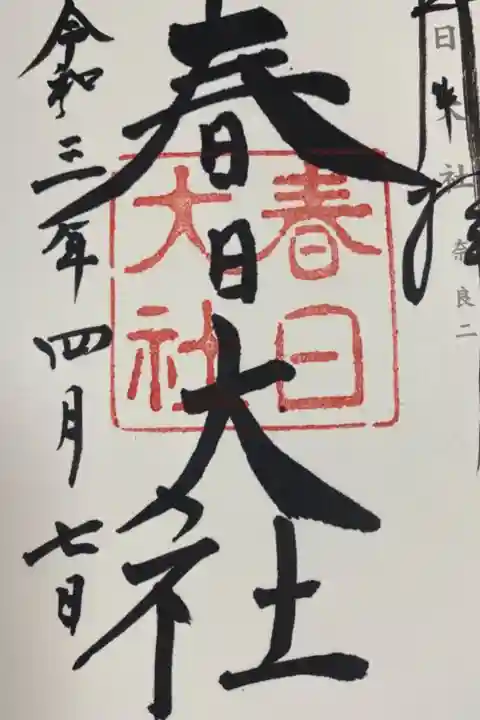 奈良二
春日大社
春日
大社
令和三年四月七日